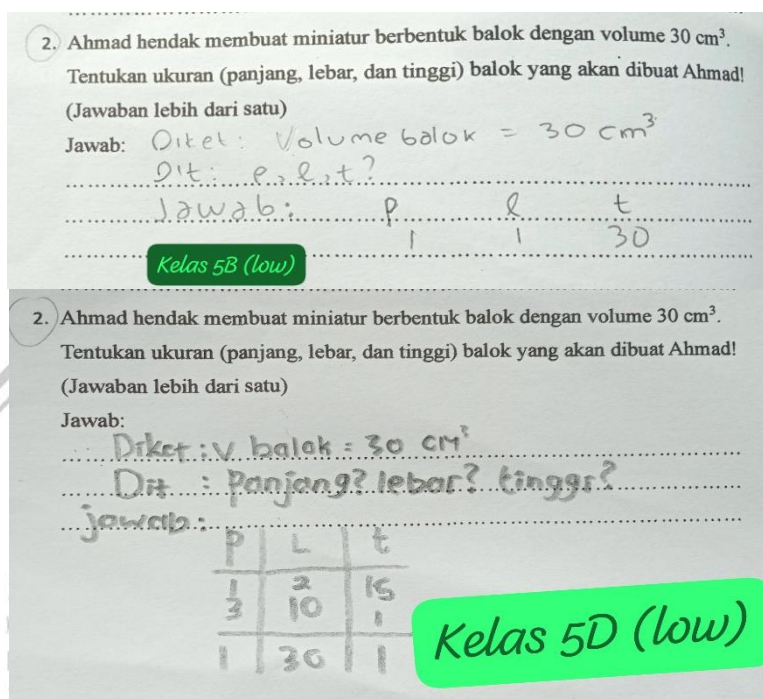 2. Ahmad hendak membuat miniatur berbentuk balok dengan volume 30 cm³.
Tentukan ukuran (panjang, lebar, dan tinggi) balok yang akan dibuat Ahmad!
(Jawaban lebih dari satu)
Jawab: Diket: Volume balok = 30 cm³
Dit: p, l, t?
Jawab: p l t
1 1 30
Kelas 5B (low)
2. Ahmad hendak membuat miniatur berbentuk balok dengan volume 30 cm³.
Tentukan ukuran (panjang, lebar, dan tinggi) balok yang akan dibuat Ahmad!
(Jawaban lebih dari satu)
Jawab:
Diket : V balok = 30 cm³
Dit : Panjang? lebar? tinggi?
jawab :
P L t
1 2 15
3 10 1
1 30 1
Kelas 5D (low)